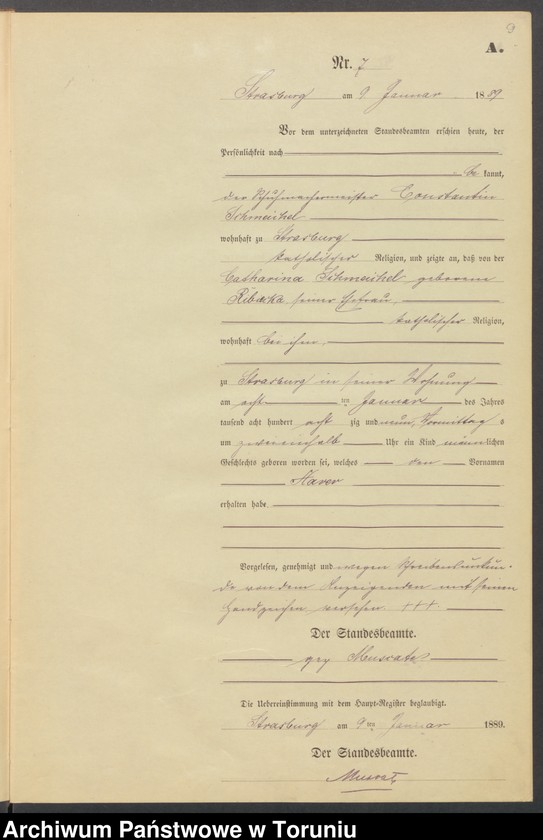 9
A.
Nr. 7
Strasburg am 9 Januar 1889
Vor dem unterzeichneten Standesbeamten erschien heute, der
Persönlichkeit nach
be kannt,
der Schuhmachermeister Constantin
Schmeichel
wohnhaft zu Strasburg
katholischer Religion, und zeigte an, daß von der
Catharina Schmeichel geborene
Ribacka seiner Ehefrau,
katholischer Religion,
wohnhaft bei ihm,
zu Strasburg in seiner Wohnung
am acht ten Januar des Jahres
tausend acht hundert acht zig und neun, Vormittag s
um zweieinhalb Uhr ein Kind männlichen
Geschlechts geboren worden sei, welches den Vornamen
Xaver
erhalten habe.
Vorgelesen, genehmigt und wegen Schreibensunkun-
de von dem Anzeigenden mit seinem
Handzeichen versehen. +++.
Der Standesbeamte.
gez
Die Uebereinstimmung mit dem Haupt-Register beglaubigt.
Strasburg am 9ten Januar 1889.
Der Standesbeamte.
Archiwum Państwowe w Toruniu